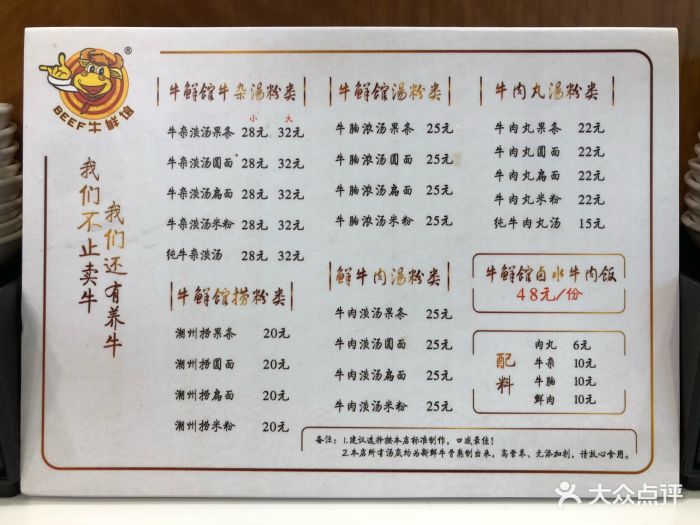 ®
BEEF牛鲜馆
我们不止卖牛
我们还有养牛
牛鲜馆牛杂汤粉类
小 大
牛杂淡汤果条 28元 32元
牛杂淡汤圆面 28元 32元
牛杂淡汤扁面 28元 32元
牛杂淡汤米粉 28元 32元
纯牛杂淡汤 28元 32元
牛鲜馆捞粉类
潮州捞果条 20元
潮州捞圆面 20元
潮州捞扁面 20元
潮州捞米粉 20元
牛鲜馆汤粉类
牛腩浓汤果条 25元
牛腩浓汤圆面 25元
牛腩浓汤扁面 25元
牛腩浓汤米粉 25元
鲜牛肉汤粉类
牛肉淡汤果条 25元
牛肉淡汤圆面 25元
牛肉淡汤扁面 25元
牛肉淡汤米粉 25元
牛肉丸汤粉类
牛肉丸果条 22元
牛肉丸圆面 22元
牛肉丸扁面 22元
牛肉丸米粉 22元
纯牛肉丸汤 15元
牛鲜馆卤水牛肉饭
48元/份
配料
肉丸 6元
牛杂 10元
牛腩 10元
鲜肉 10元
备注：1.建议选择按本店标准制作，口感最佳！
2.本店所有汤底均为新鲜牛骨熬制出来，高营养、无添加剂，请放心食用。
大众点评